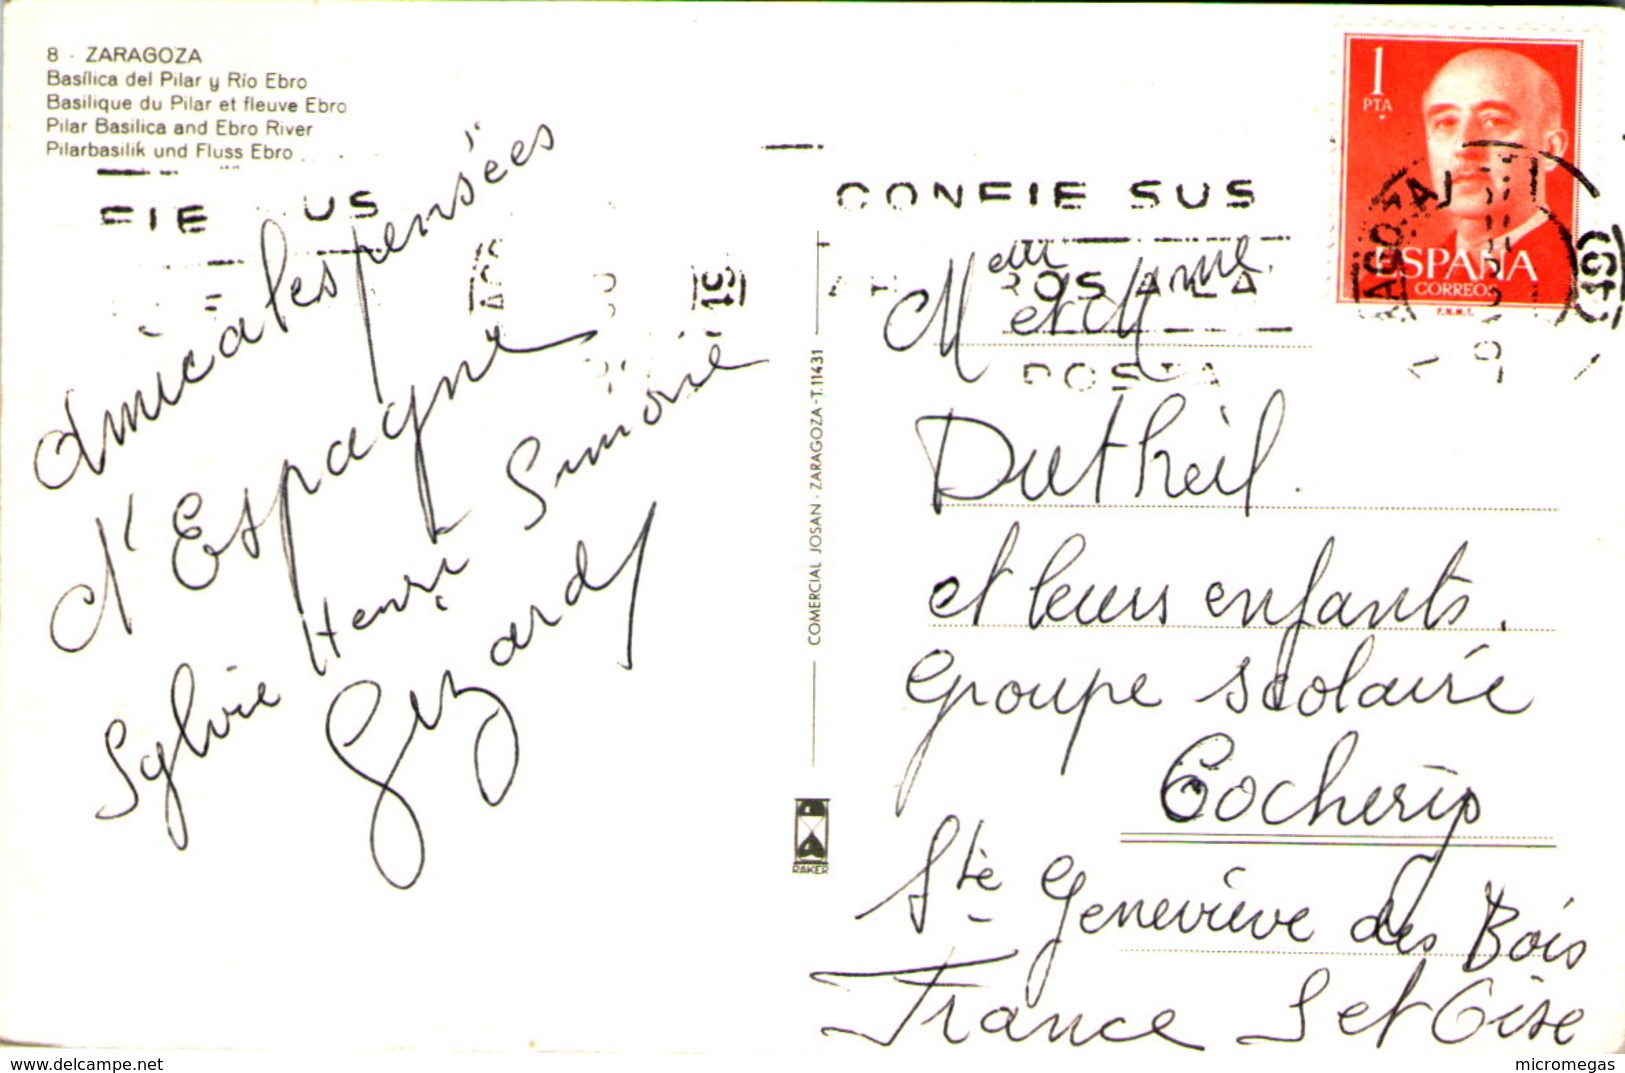 8 - ZARAGOZA
Basílica del Pilar y Río Ebro
Basilique du Pilar et fleuve Ebro
Pilar Basilica and Ebro River
Pilarbasilik und Fluss Ebro
FIE US
Amicales pensées
d'Espagne
Sylvie Henri Simone
Gezard
COMERCIAL JOSAN - ZARAGOZA - T. 11431
RAKER
CONFIE SUS
1
PTA
ESPAÑA
CORREOS
F.N.M.T.
Meur et Mme
POSTA
Dutheil.
et leurs enfants.
groupe scolaire
Cocheris
Ste Geneviève des Bois
France S et Oise
http://www.delcampe.net
micromegas